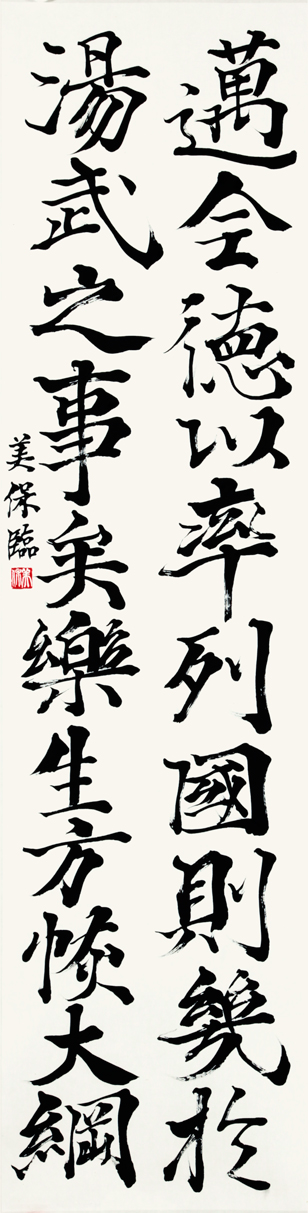 邁全德以率列國則幾於
湯武之事矣樂生方恢大綱
美保臨